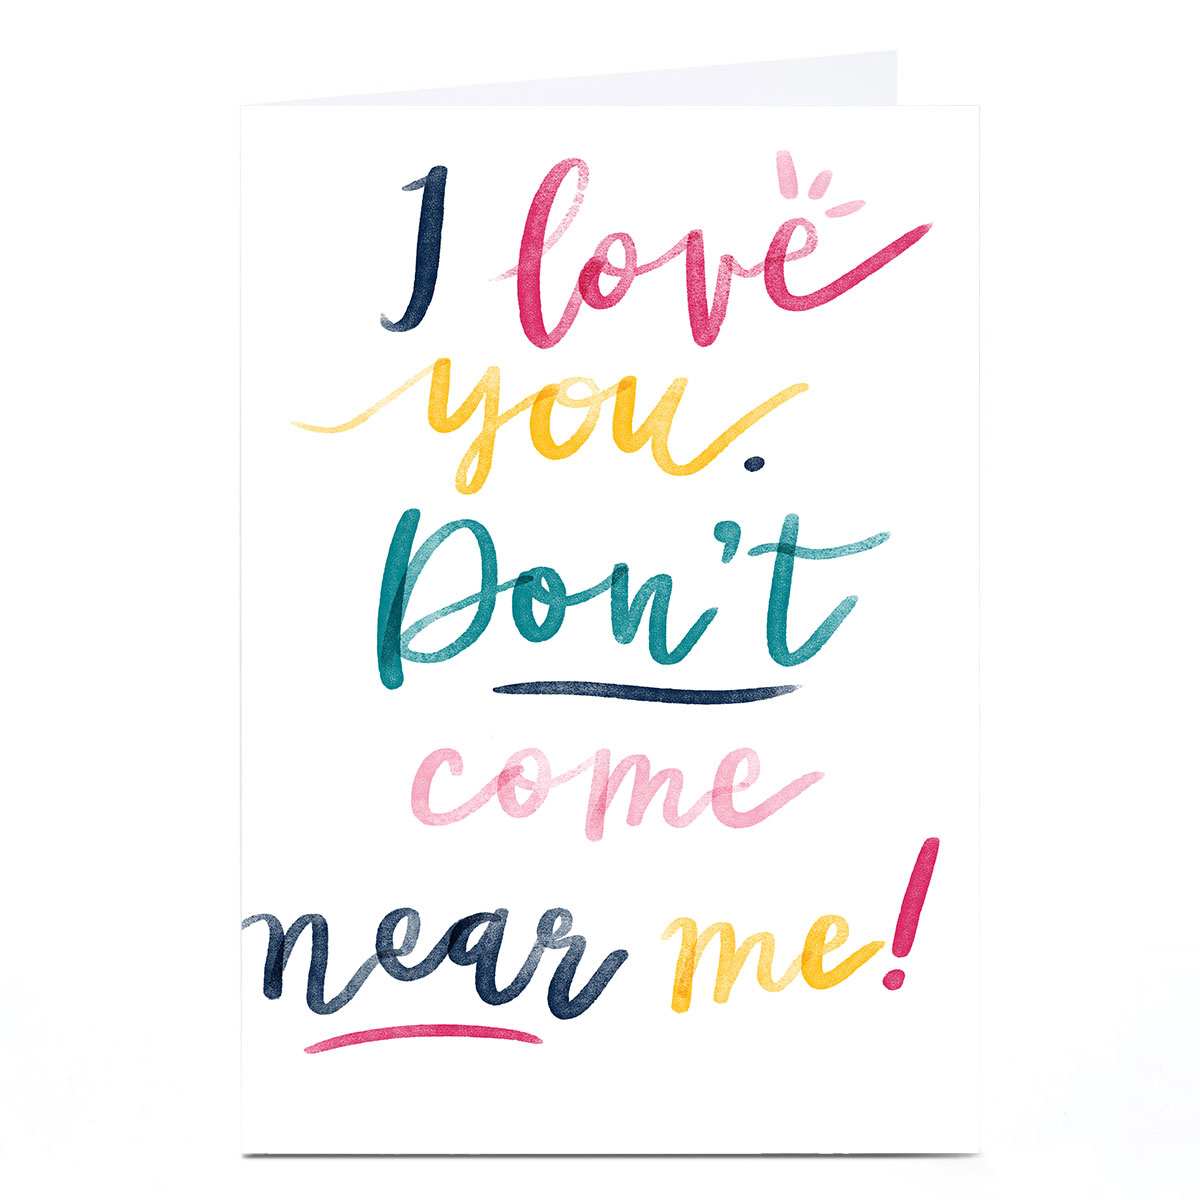 I love
you.
Don't
come
near me!